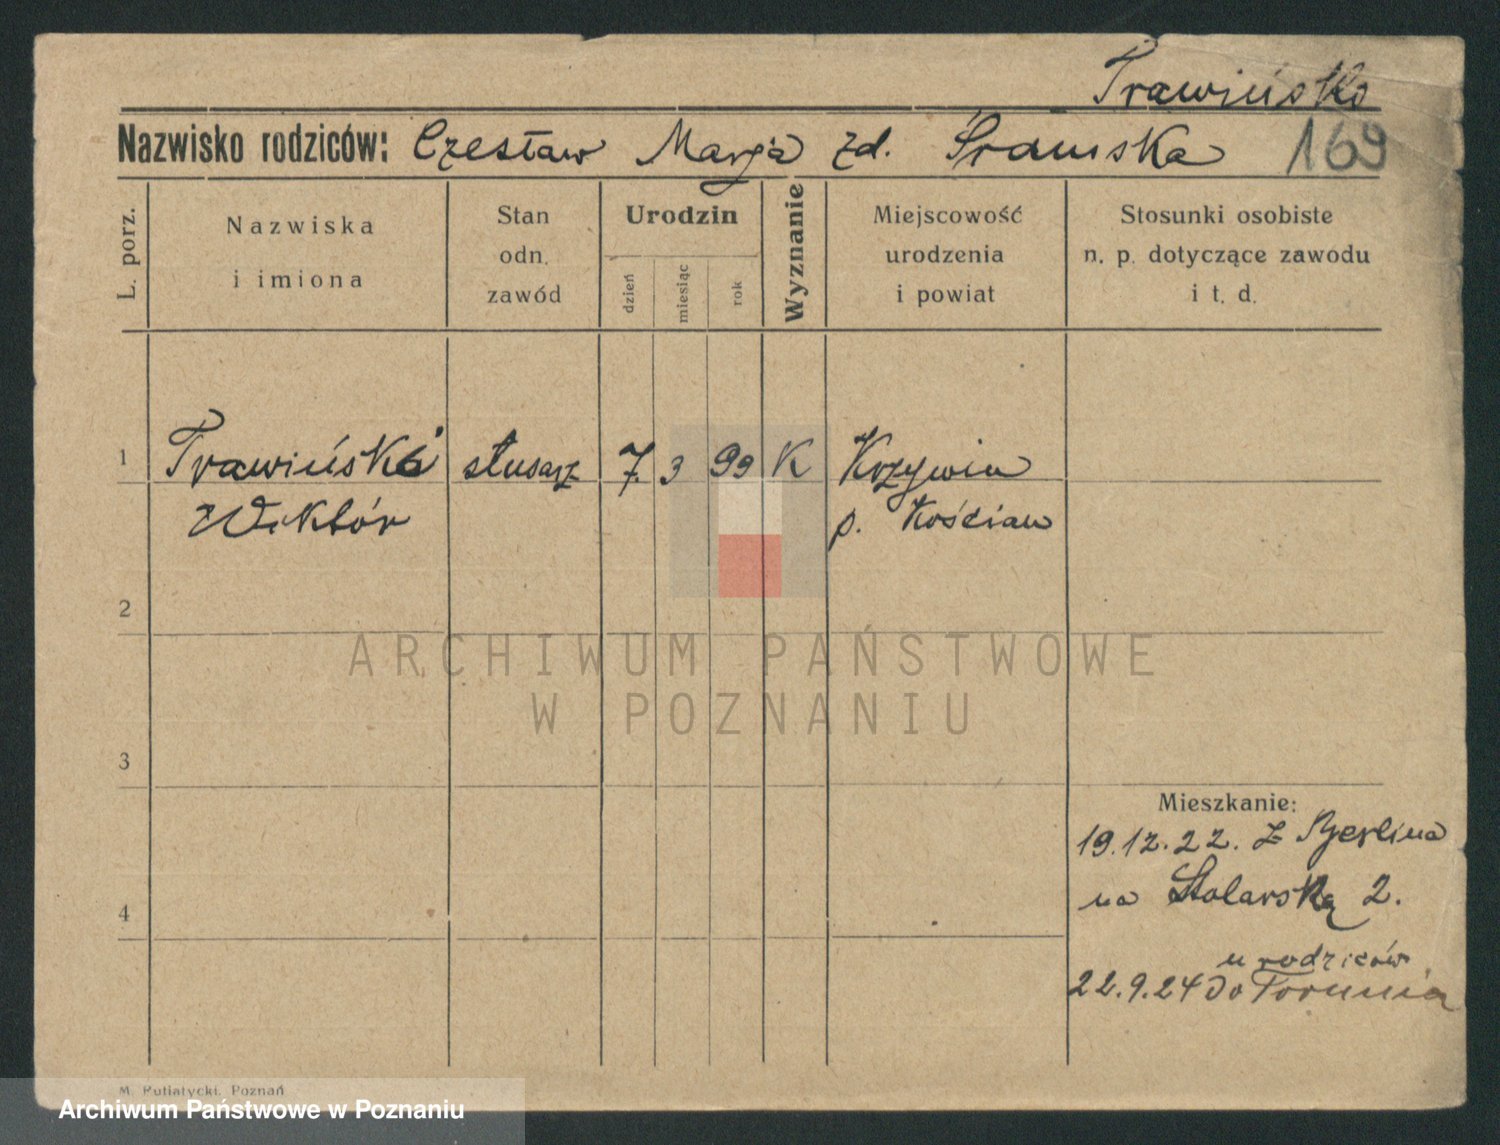 Trawińsko
Nazwisko rodziców: Czesław Marja zd. Sramska 169
L. porz.
Nazwiska
i imiona
Stan
odn.
zawód
Urodzin
dzień
miesiąc
rok
Wyznanie
Miejscowość
urodzenia
i powiat
Stosunki osobiste
n. p. dotyczące zawodu
i t. d.
1 Trawiński ślusarz 7. 3 99 K Krzywin
Wiktór p. Kościan
2
3
4
Mieszkanie:
19.12.22. z Berlina
na Stolarską 2.
u rodziców
22.9.24 do Torunia
M. Putiatycki, Poznań
ARCHIWUM PAŃSTWOWE
W POZNANIU
Archiwum Państwowe w Poznaniu